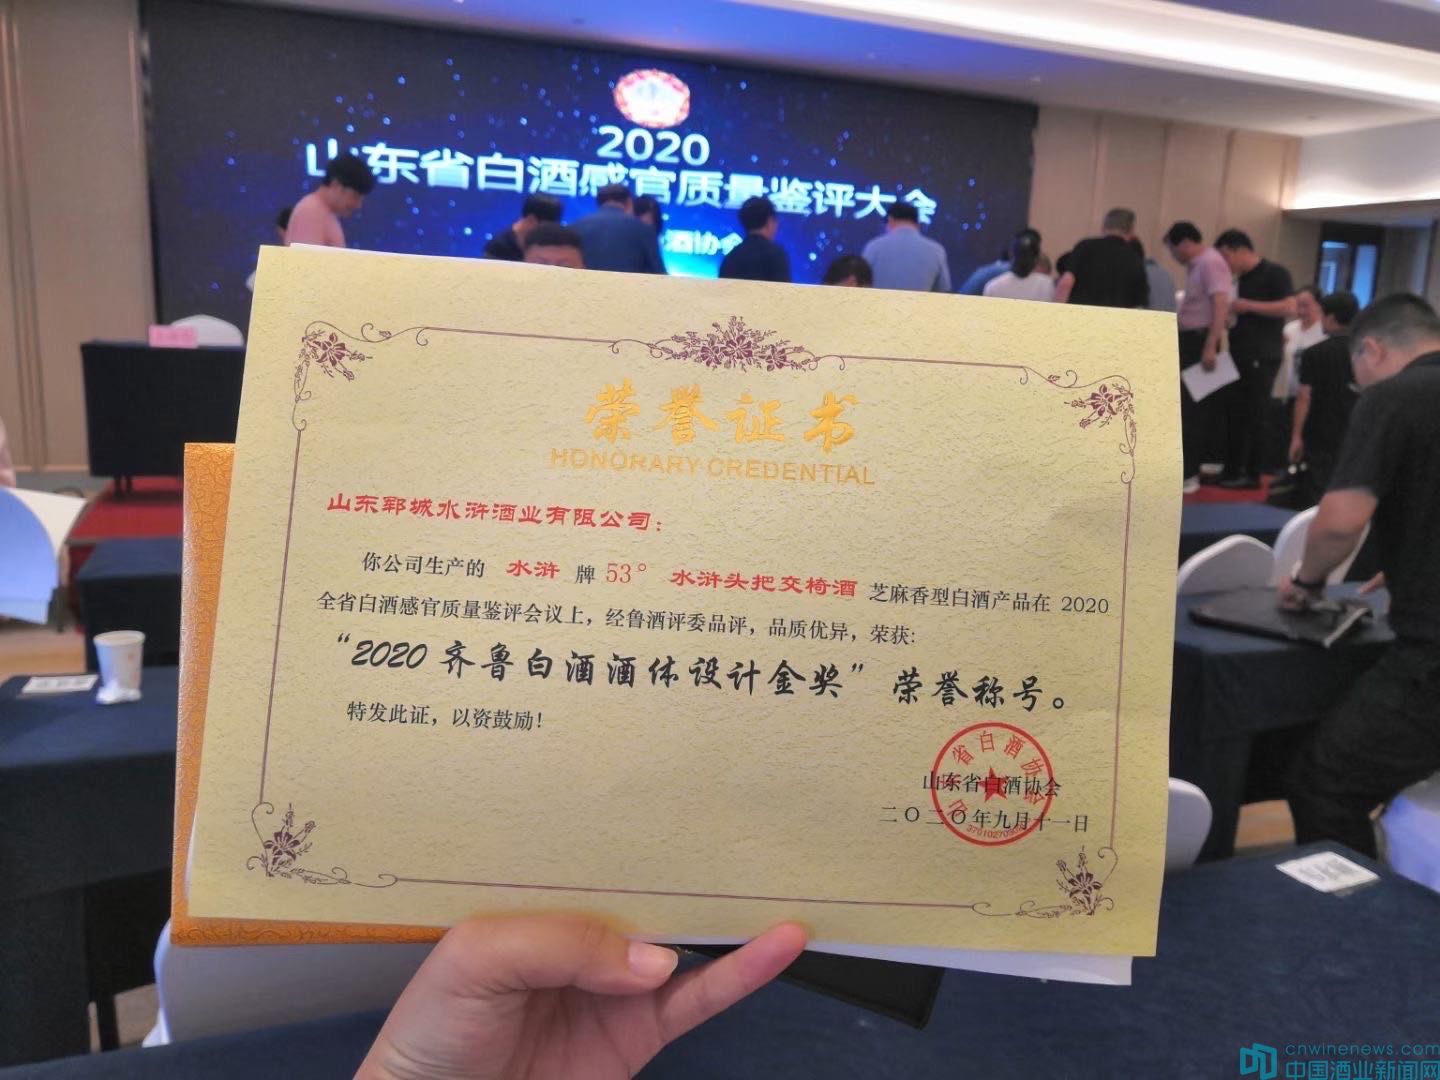 2020
山东省白酒感官质量鉴评大会
酒协会
荣誉证书
HONORARY CREDENTIAL
山东郓城水浒酒业有限公司：
你公司生产的 水浒 牌 53° 水浒头把交椅酒 芝麻香型白酒产品在 2020
全省白酒感官质量鉴评会议上，经鲁酒评委品评，品质优异，荣获:
“2020 齐鲁白酒酒体设计金奖” 荣誉称号。
特发此证，以资鼓励！
山东省白酒协会
山东省白酒协会
二〇二〇年九月十一日
cnwinenews.com
中国酒业新闻网